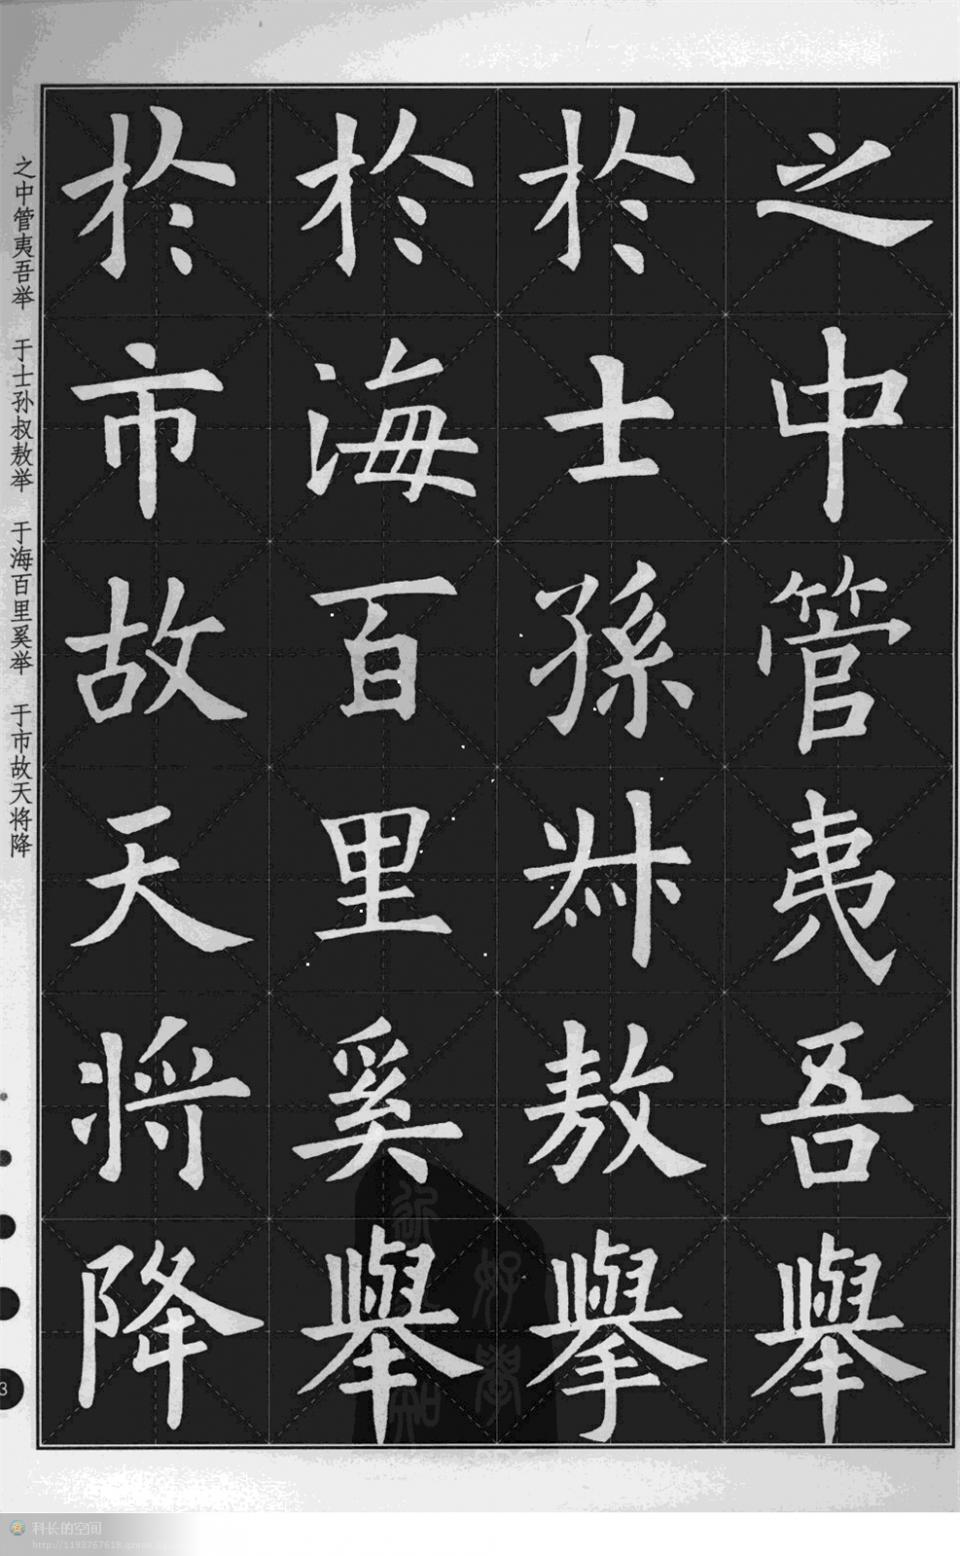 之中管夷吾舉
於士孫叔敖舉
於海百里奚舉
於市故天将降
之中管夷吾举 于士孙叔敖举 于海百里奚举 于市故天将降
3
科长的空间